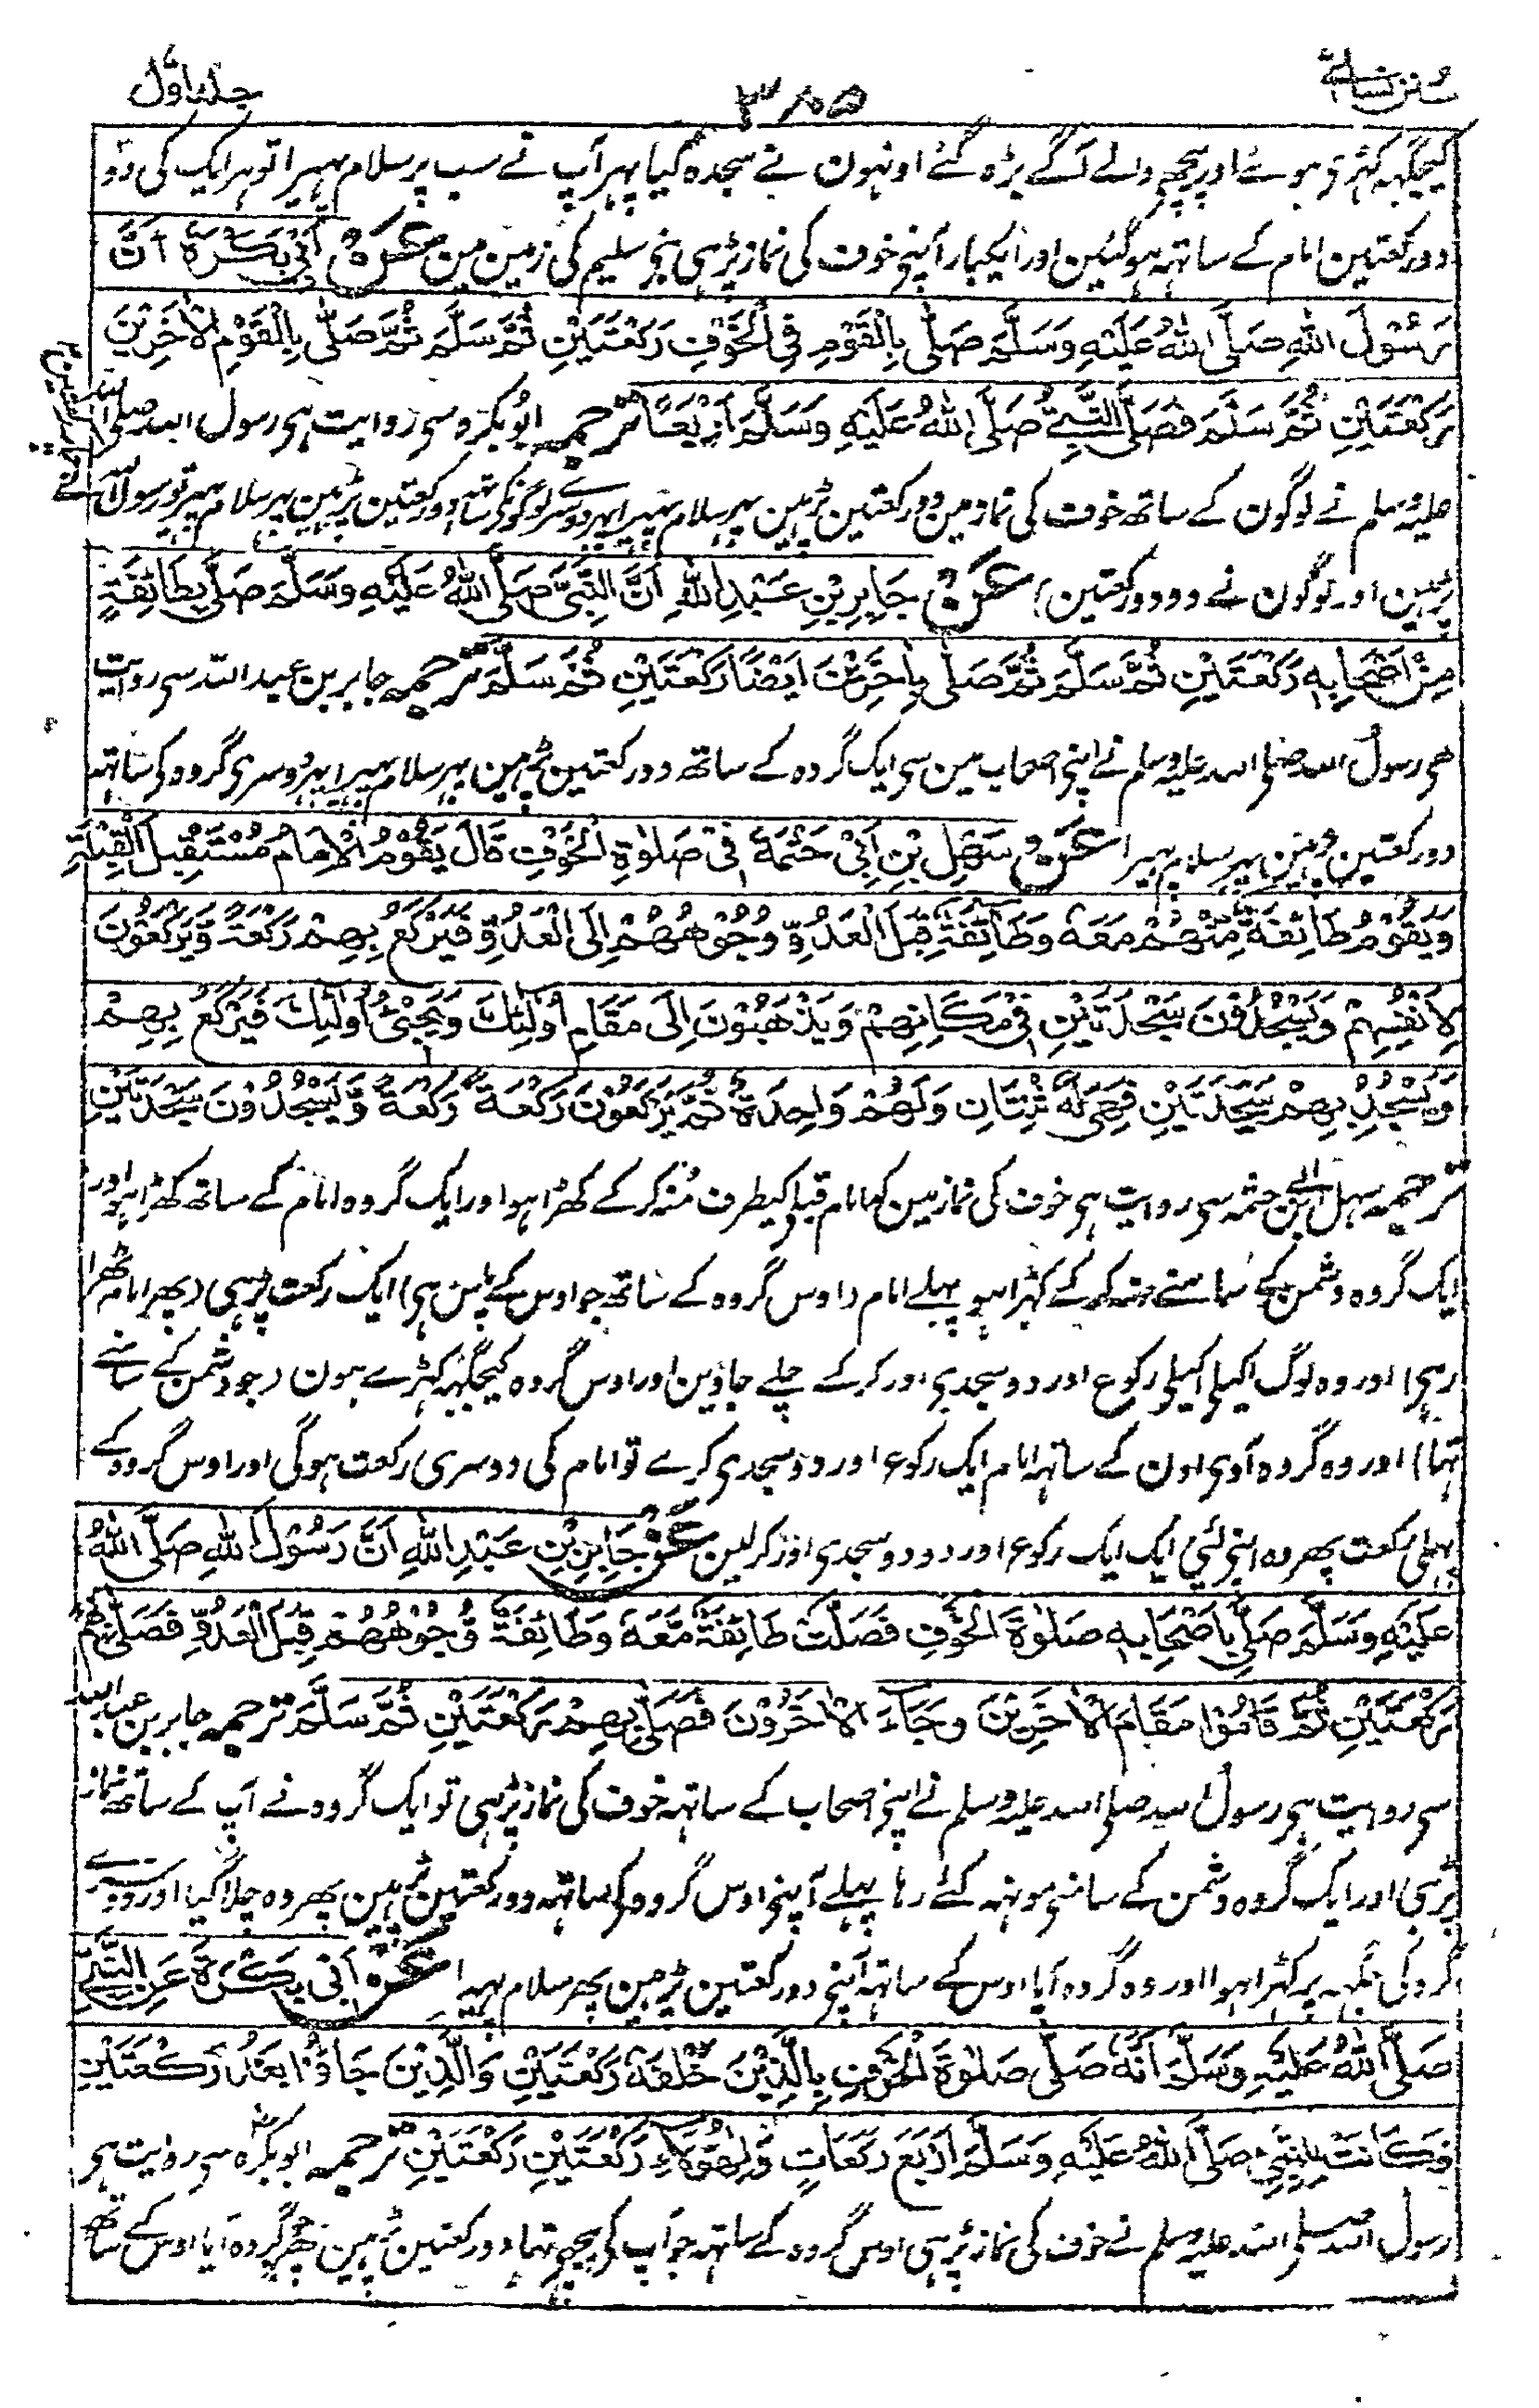 سنن نسائی
۳۸۵
جلد اول
کیجگہہ کہڑی ہوئے اور پیچہے والے آگے بڑہ گئے اونہون نے سجدہ کیا پہر آپ نے سب پر سلام پہیرا تو ہر ایک کی دو
دو رکعتین امام کے ساتہہ ہو گئین اور ایکبار آپنے خوف کی نماز پڑہی بنی سلیم کی زمین مین عَنْ اَبِیْ بَکْرَۃَ اَنَّ
رَسُوْلَ اللّٰہِ صَلَّی اللّٰہُ عَلَیْہِ وَسَلَّمَ صَلّٰی بِالْقَوْمِ فِی الْخَوْفِ رَکْعَتَیْنِ ثُمَّ سَلَّمَ ثُمَّ صَلّٰی بِالْقَوْمِ الْاٰخَرِیْنَ
رَکْعَتَیْنِ ثُمَّ سَلَّمَ فَصَلَّی النَّبِیُّ صَلَّی اللّٰہُ عَلَیْہِ وَسَلَّمَ اَرْبَعًا ترجمہ ابو بکرہ سی روایت ہی رسول اللہ صلی اللہ
علیہ وسلم نے لوگون کے ساتھ خوف کی نماز مین دو رکعتین پڑہین پہر سلام پہیرا پہر دوسرے لوگونکی ساتہہ دو رکعتین پڑہین پہر سلام پہیرا تو رسول اللہ نے
چار رکعتین
پڑہین اور لوگون نے دو دو رکعتین) عَنْ جَابِرِ بْنِ عَبْدِ اللّٰہِ اَنَّ النَّبِیَّ صَلَّی اللّٰہُ عَلَیْہِ وَسَلَّمَ صَلّٰی بِطَائِفَۃٍ
مِنْ اَصْحَابِہٖ رَکْعَتَیْنِ ثُمَّ سَلَّمَ ثُمَّ صَلّٰی بِاٰخَرِیْنَ اَیْضًا رَکْعَتَیْنِ ثُمَّ سَلَّمَ ترجمہ جابر بن عبد اللہ سی روایت
ہی رسول اللہ صلی اللہ علیہ وسلم نے اپنی اصحاب مین سی ایک گروہ کے ساتھ دو رکعتین پڑہین پہر سلام پہیرا پہر دوسری گروہ کی ساتہہ
دو رکعتین پڑہین پہر سلام پہیرا عَنْ سَھْلِ بْنِ اَبِیْ حَثْمَۃَ فِیْ صَلٰوۃِ الْخَوْفِ قَالَ یَقُوْمُ الْاِمَامُ مُسْتَقْبِلَ الْقِبْلَۃِ
وَیَقُوْمُ طَائِفَۃٌ مِنْھُمْ مَعَہٗ وَطَائِفَۃٌ قِبَلَ الْعَدُوِّ وُجُوْھُھُمْ اِلَی الْعَدُوِّ فَیَرْکَعُ بِھِمْ رَکْعَۃً وَیَرْکَعُوْنَ
لِاَنْفُسِھِمْ وَیَسْجُدُوْنَ سَجْدَتَیْنِ فِیْ مَکَانِھِمْ وَیَذْھَبُوْنَ اِلٰی مَقَامِ اُولٰئِکَ وَیَجِیْئُ اُولٰئِکَ فَیَرْکَعُ بِھِمْ
وَیَسْجُدُ بِھِمْ سَجْدَتَیْنِ فَھِیَ لَہٗ ثِنْتَانِ وَلَھُمْ وَاحِدَۃٌ ثُمَّ یَرْکَعُوْنَ رَکْعَۃً رَکْعَۃً وَّیَسْجُدُوْنَ سَجْدَتَیْنِ
ترجمہ سہل بن ابی حثمہ سی روایت ہی خوف کی نماز مین کہا امام قبلہ کیطرف مُنہ کر کے کھڑا ہو اور ایک گروہ امام کے ساتھ کھڑا ہو اور
ایک گروہ دشمن کے سامنے منہ کر کے کہڑا ہو پہلے امام (اوس گروہ کے ساتھ جو اوس کے پاس ہی) ایک رکعت پڑہی (پھر امام ٹھرا
رہی) اور وہ لوگ اکیلی اکیلی رکوع اور دو سجدی اور کر کے چلے جاوین اور اوس گروہ کیجگہہ کہڑے ہون (جو دشمن کے سامنے
تہا) اور وہ گروہ آوی اون کے ساتہہ امام ایک رکوع اور دو سجدی کرے تو امام کی دوسری رکعت ہوگی اور اوس گروہ کے
پہلی رکعت پھر وہ اپنی لئی ایک ایک رکوع اور دو دو سجدی اور کرلین عَنْ جَابِرِ بْنِ عَبْدِ اللّٰہِ اَنَّ رَسُوْلَ اللّٰہِ صَلَّی اللّٰہُ
عَلَیْہِ وَسَلَّمَ صَلّٰی بِاَصْحَابِہٖ صَلٰوۃَ الْخَوْفِ فَصَلَّتْ طَائِفَۃٌ مَّعَہٗ وَطَائِفَۃٌ وُّجُوْھُھُمْ قِبَلَ الْعَدُوِّ فَصَلّٰی بِھِمْ
رَکْعَتَیْنِ ثُمَّ قَامُوْا مَقَامَ الْاٰخَرِیْنَ وَجَاءَ الْاٰخَرُوْنَ فَصَلّٰی بِھِمْ رَکْعَتَیْنِ ثُمَّ سَلَّمَ ترجمہ جابر بن عبد اللہ
سی روایت ہی رسول اللہ صلی اللہ علیہ وسلم نے اپنی اصحاب کے ساتہہ خوف کی نماز پڑہی تو ایک گروہ نے آپ کے ساتھ نماز
پڑہی اور ایک گروہ دشمن کے سامنی مونہہ کئے رہا پہلے آپنی اوس گروہ کی ساتہہ دو رکعتین پڑہین پھر وہ چلا گیا اور دوسرے
گروہ کی جگہہ پر کہڑا ہوا اور وہ گروہ آیا اوس کے ساتہہ آپنی دو رکعتین پڑہین پھر سلام پہیرا عَنْ اَبِیْ بَکْرَۃَ عَنِ النَّبِیِّ
صَلَّی اللّٰہُ عَلَیْہِ وَسَلَّمَ اَنَّہٗ صَلّٰی صَلٰوۃَ الْخَوْفِ بِالَّذِیْنَ خَلْفَہٗ رَکْعَتَیْنِ وَالَّذِیْنَ جَاؤُا بَعْدُ رَکْعَتَیْنِ
فَکَانَتْ لِلنَّبِیِّ صَلَّی اللّٰہُ عَلَیْہِ وَسَلَّمَ اَرْبَعَ رَکَعَاتٍ وَلِھٰؤُلَاءِ رَکْعَتَیْنِ رَکْعَتَیْنِ ترجمہ ابو بکرہ سی روایت ہی
رسول اللہ صلی اللہ علیہ وسلم نے خوف کی نماز پڑہی اوس گروہ کے ساتہہ جو آپ کی پیچہی تہا دو رکعتین پڑہین پھر جو گروہ آیا اوس کے ساتھ